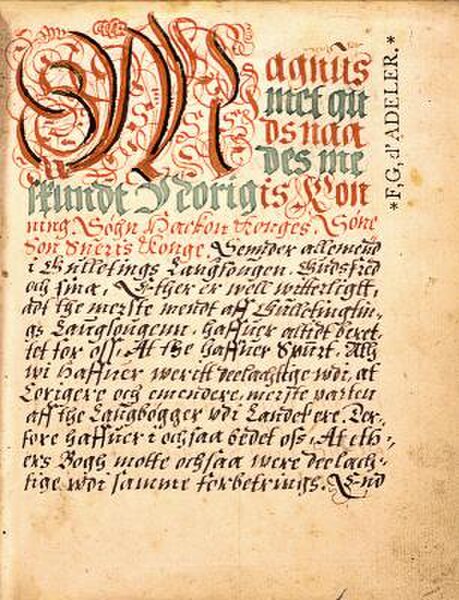 Magnus
met gu
ds naa
des me
skundt Norigis Kon
ning. Søgn Hackon Konges. Søne
Søn Sueris Konge. Sennder allemend
i Gulletings Laugsougen. Gudsfred
och sina, Ether er well witterligtt,
adt the merste mendt aff Gulletingsin-
gs Laugsougenn. haffuer altidt beret-
tet for oss. At the haffuer Spurt. Alb
wi haffuer weritt deelachtige wdi, at
Corigere och emendere, merste parten
aff the Laugbøgger wdi Landet ere. Der-
fore haffuer i ochsaa bedet oss. At eth-
ers Bogh motte ochsaa were deelach-
tige wdi samme forbetrings. End
*F,G,d'ADELER.*